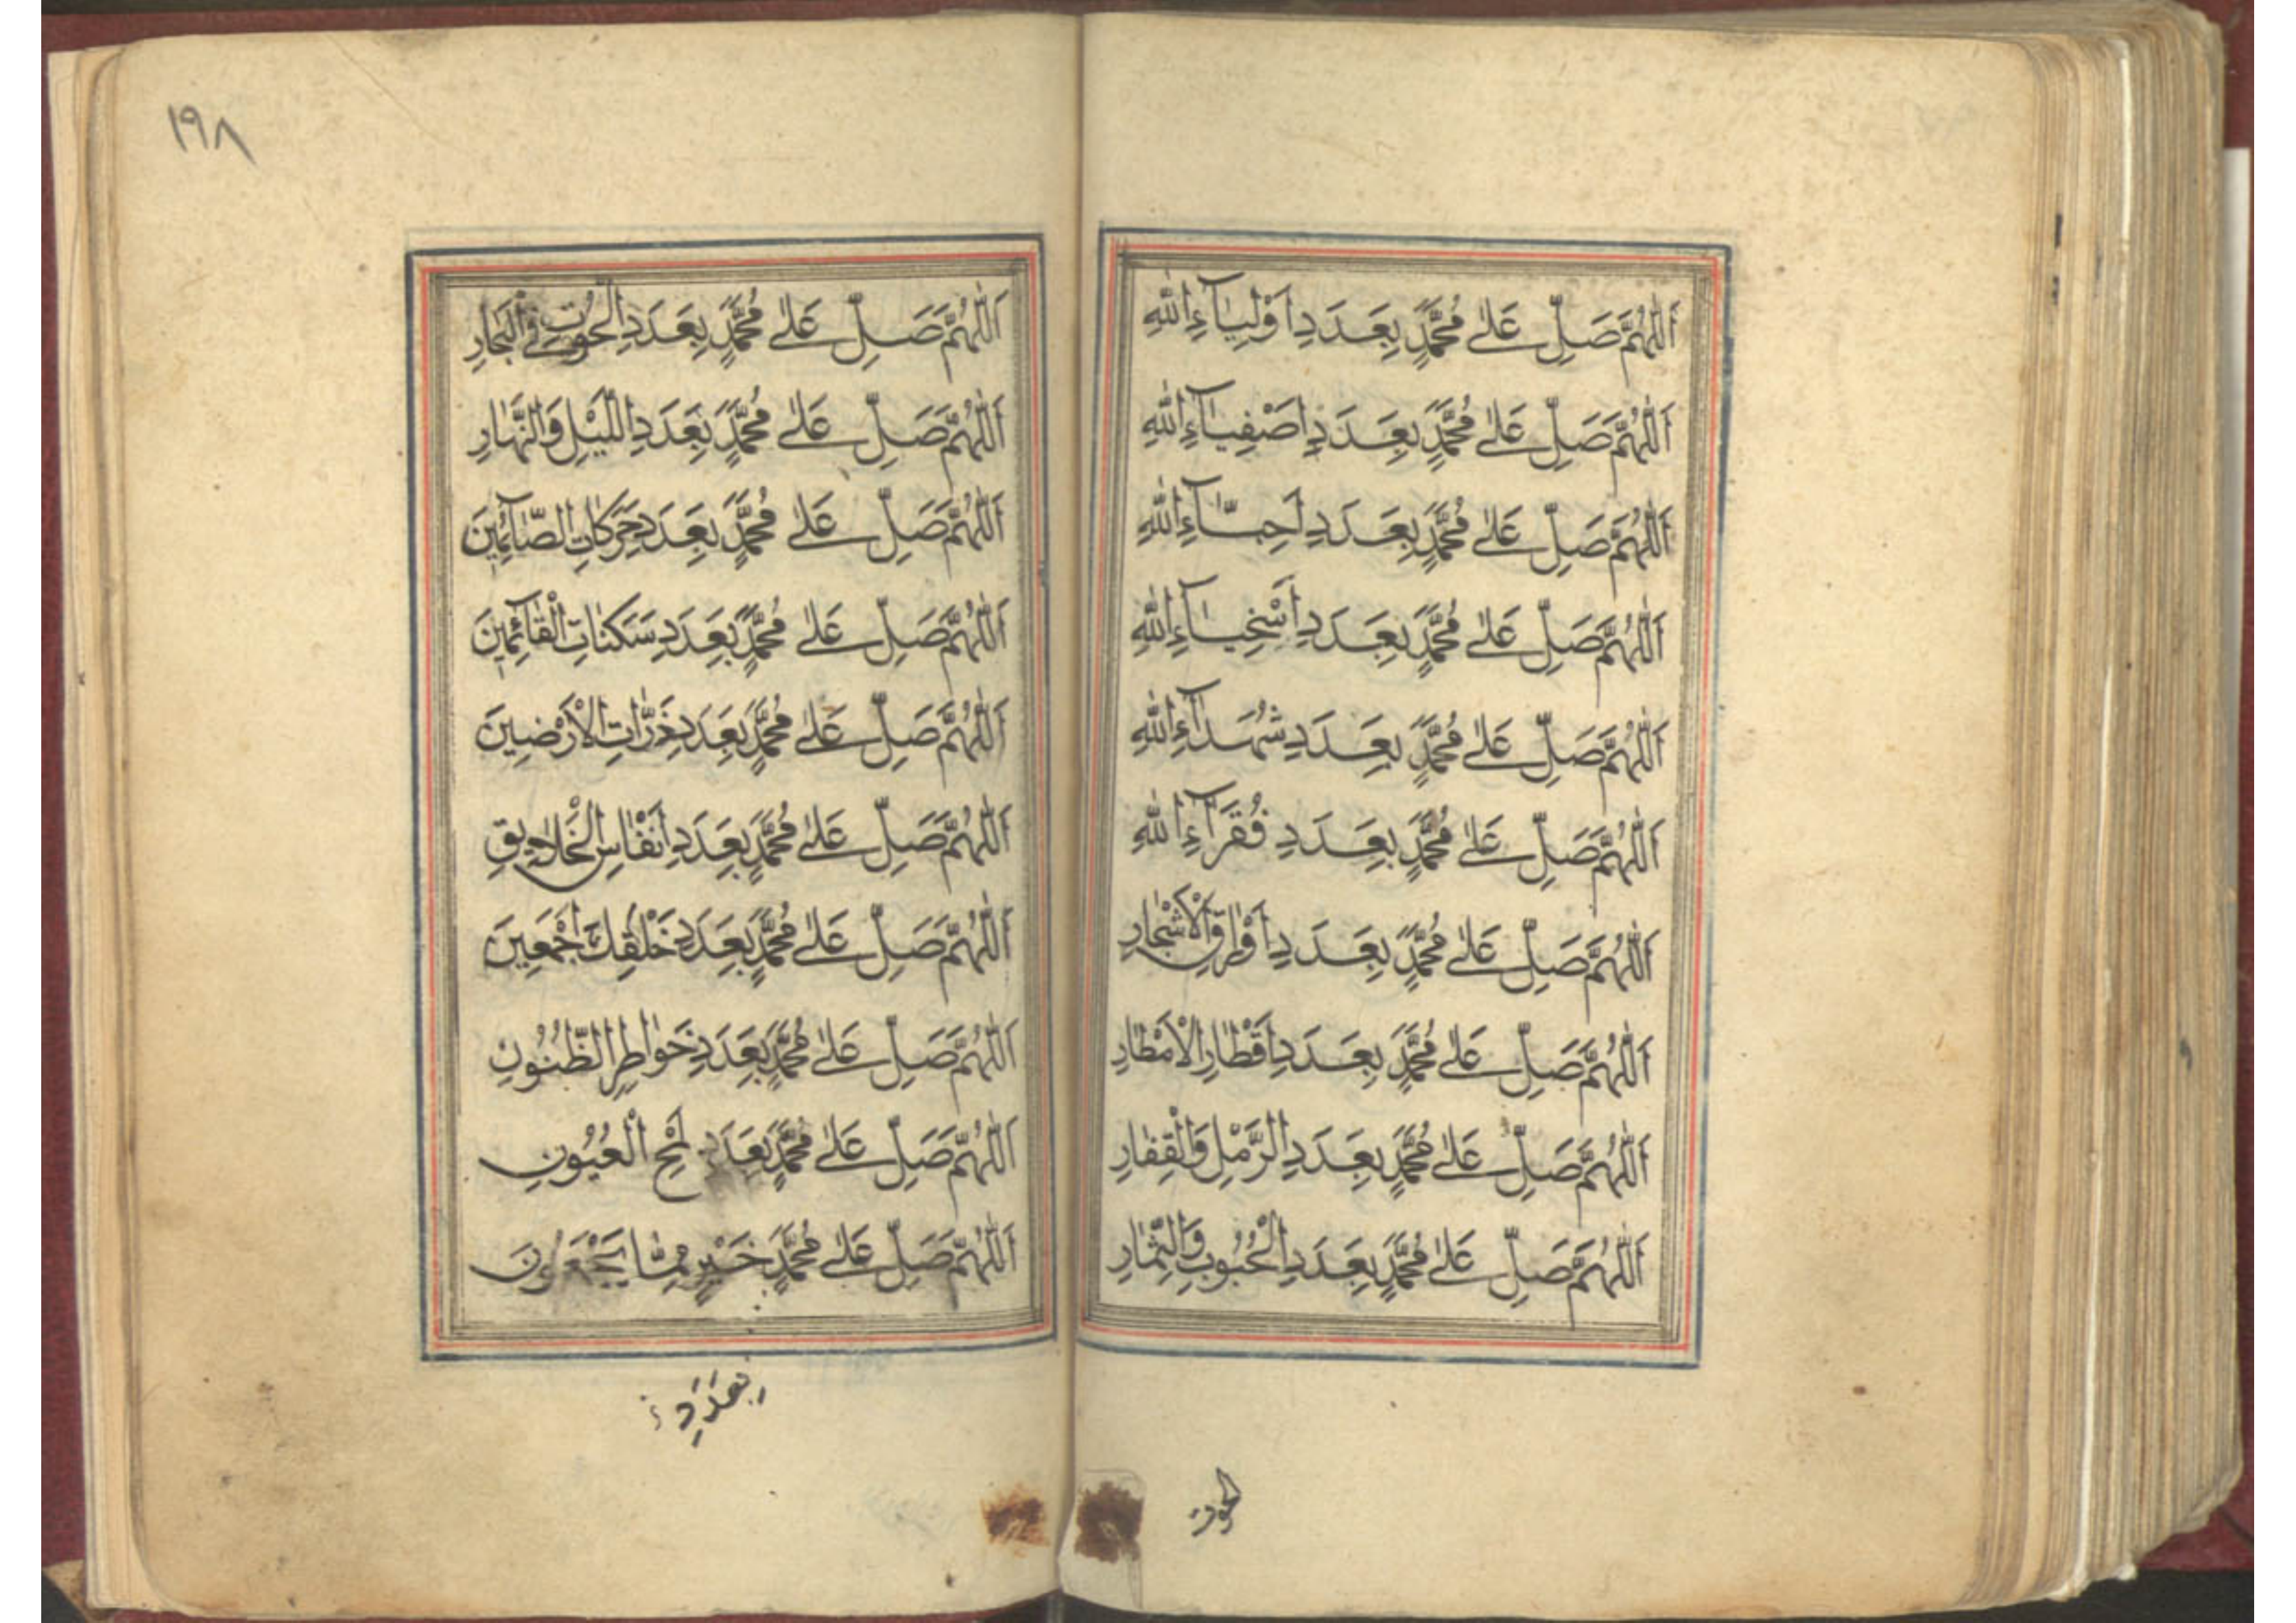 اَللّٰهُمَّ صَلِّ عَلٰى مُحَمَّدٍ بِعَدَدِ اَوْلِيَآءِ اللّٰهِ
اَللّٰهُمَّ صَلِّ عَلٰى مُحَمَّدٍ بِعَدَدِ اَصْفِيَآءِ اللّٰهِ
اَللّٰهُمَّ صَلِّ عَلٰى مُحَمَّدٍ بِعَدَدِ اَحِبَّآءِ اللّٰهِ
اَللّٰهُمَّ صَلِّ عَلٰى مُحَمَّدٍ بِعَدَدِ اَسْخِيَآءِ اللّٰهِ
اَللّٰهُمَّ صَلِّ عَلٰى مُحَمَّدٍ بِعَدَدِ شُهَدَآءِ اللّٰهِ
اَللّٰهُمَّ صَلِّ عَلٰى مُحَمَّدٍ بِعَدَدِ فُقَرَآءِ اللّٰهِ
اَللّٰهُمَّ صَلِّ عَلٰى مُحَمَّدٍ بِعَدَدِ اَوْرَاقِ الْاَشْجَارِ
اَللّٰهُمَّ صَلِّ عَلٰى مُحَمَّدٍ بِعَدَدِ اَقْطَارِ الْاَمْطَارِ
اَللّٰهُمَّ صَلِّ عَلٰى مُحَمَّدٍ بِعَدَدِ الرَّمْلِ وَالْقِفَارِ
اَللّٰهُمَّ صَلِّ عَلٰى مُحَمَّدٍ بِعَدَدِ الْحُبُوبِ وَالثِّمَارِ
الحوت
١٩٨
اَللّٰهُمَّ صَلِّ عَلٰى مُحَمَّدٍ بِعَدَدِ الْحُوتِ فِي الْبِحَارِ
اَللّٰهُمَّ صَلِّ عَلٰى مُحَمَّدٍ بِعَدَدِ اللَّيْلِ وَالنَّهَارِ
اَللّٰهُمَّ صَلِّ عَلٰى مُحَمَّدٍ بِعَدَدِ حَرَكَاتِ الصَّآئِمِينَ
اَللّٰهُمَّ صَلِّ عَلٰى مُحَمَّدٍ بِعَدَدِ سَكَنَاتِ الْقَآئِمِينَ
اَللّٰهُمَّ صَلِّ عَلٰى مُحَمَّدٍ بِعَدَدِ ذَرَّاتِ الْاَرْضِينَ
اَللّٰهُمَّ صَلِّ عَلٰى مُحَمَّدٍ بِعَدَدِ اَنْفَاسِ الْخَلَايِقِ
اَللّٰهُمَّ صَلِّ عَلٰى مُحَمَّدٍ بِعَدَدِ خَلْقِكَ اَجْمَعِينَ
اَللّٰهُمَّ صَلِّ عَلٰى مُحَمَّدٍ بِعَدَدِ خَوَاطِرِ الظُّنُونِ
اَللّٰهُمَّ صَلِّ عَلٰى مُحَمَّدٍ بِعَدَدِ لَمْحِ الْعُيُونِ
اَللّٰهُمَّ صَلِّ عَلٰى مُحَمَّدٍ خَيْرٍ مِمَّا يَجْمَعُونَ
بِعَدَدِ